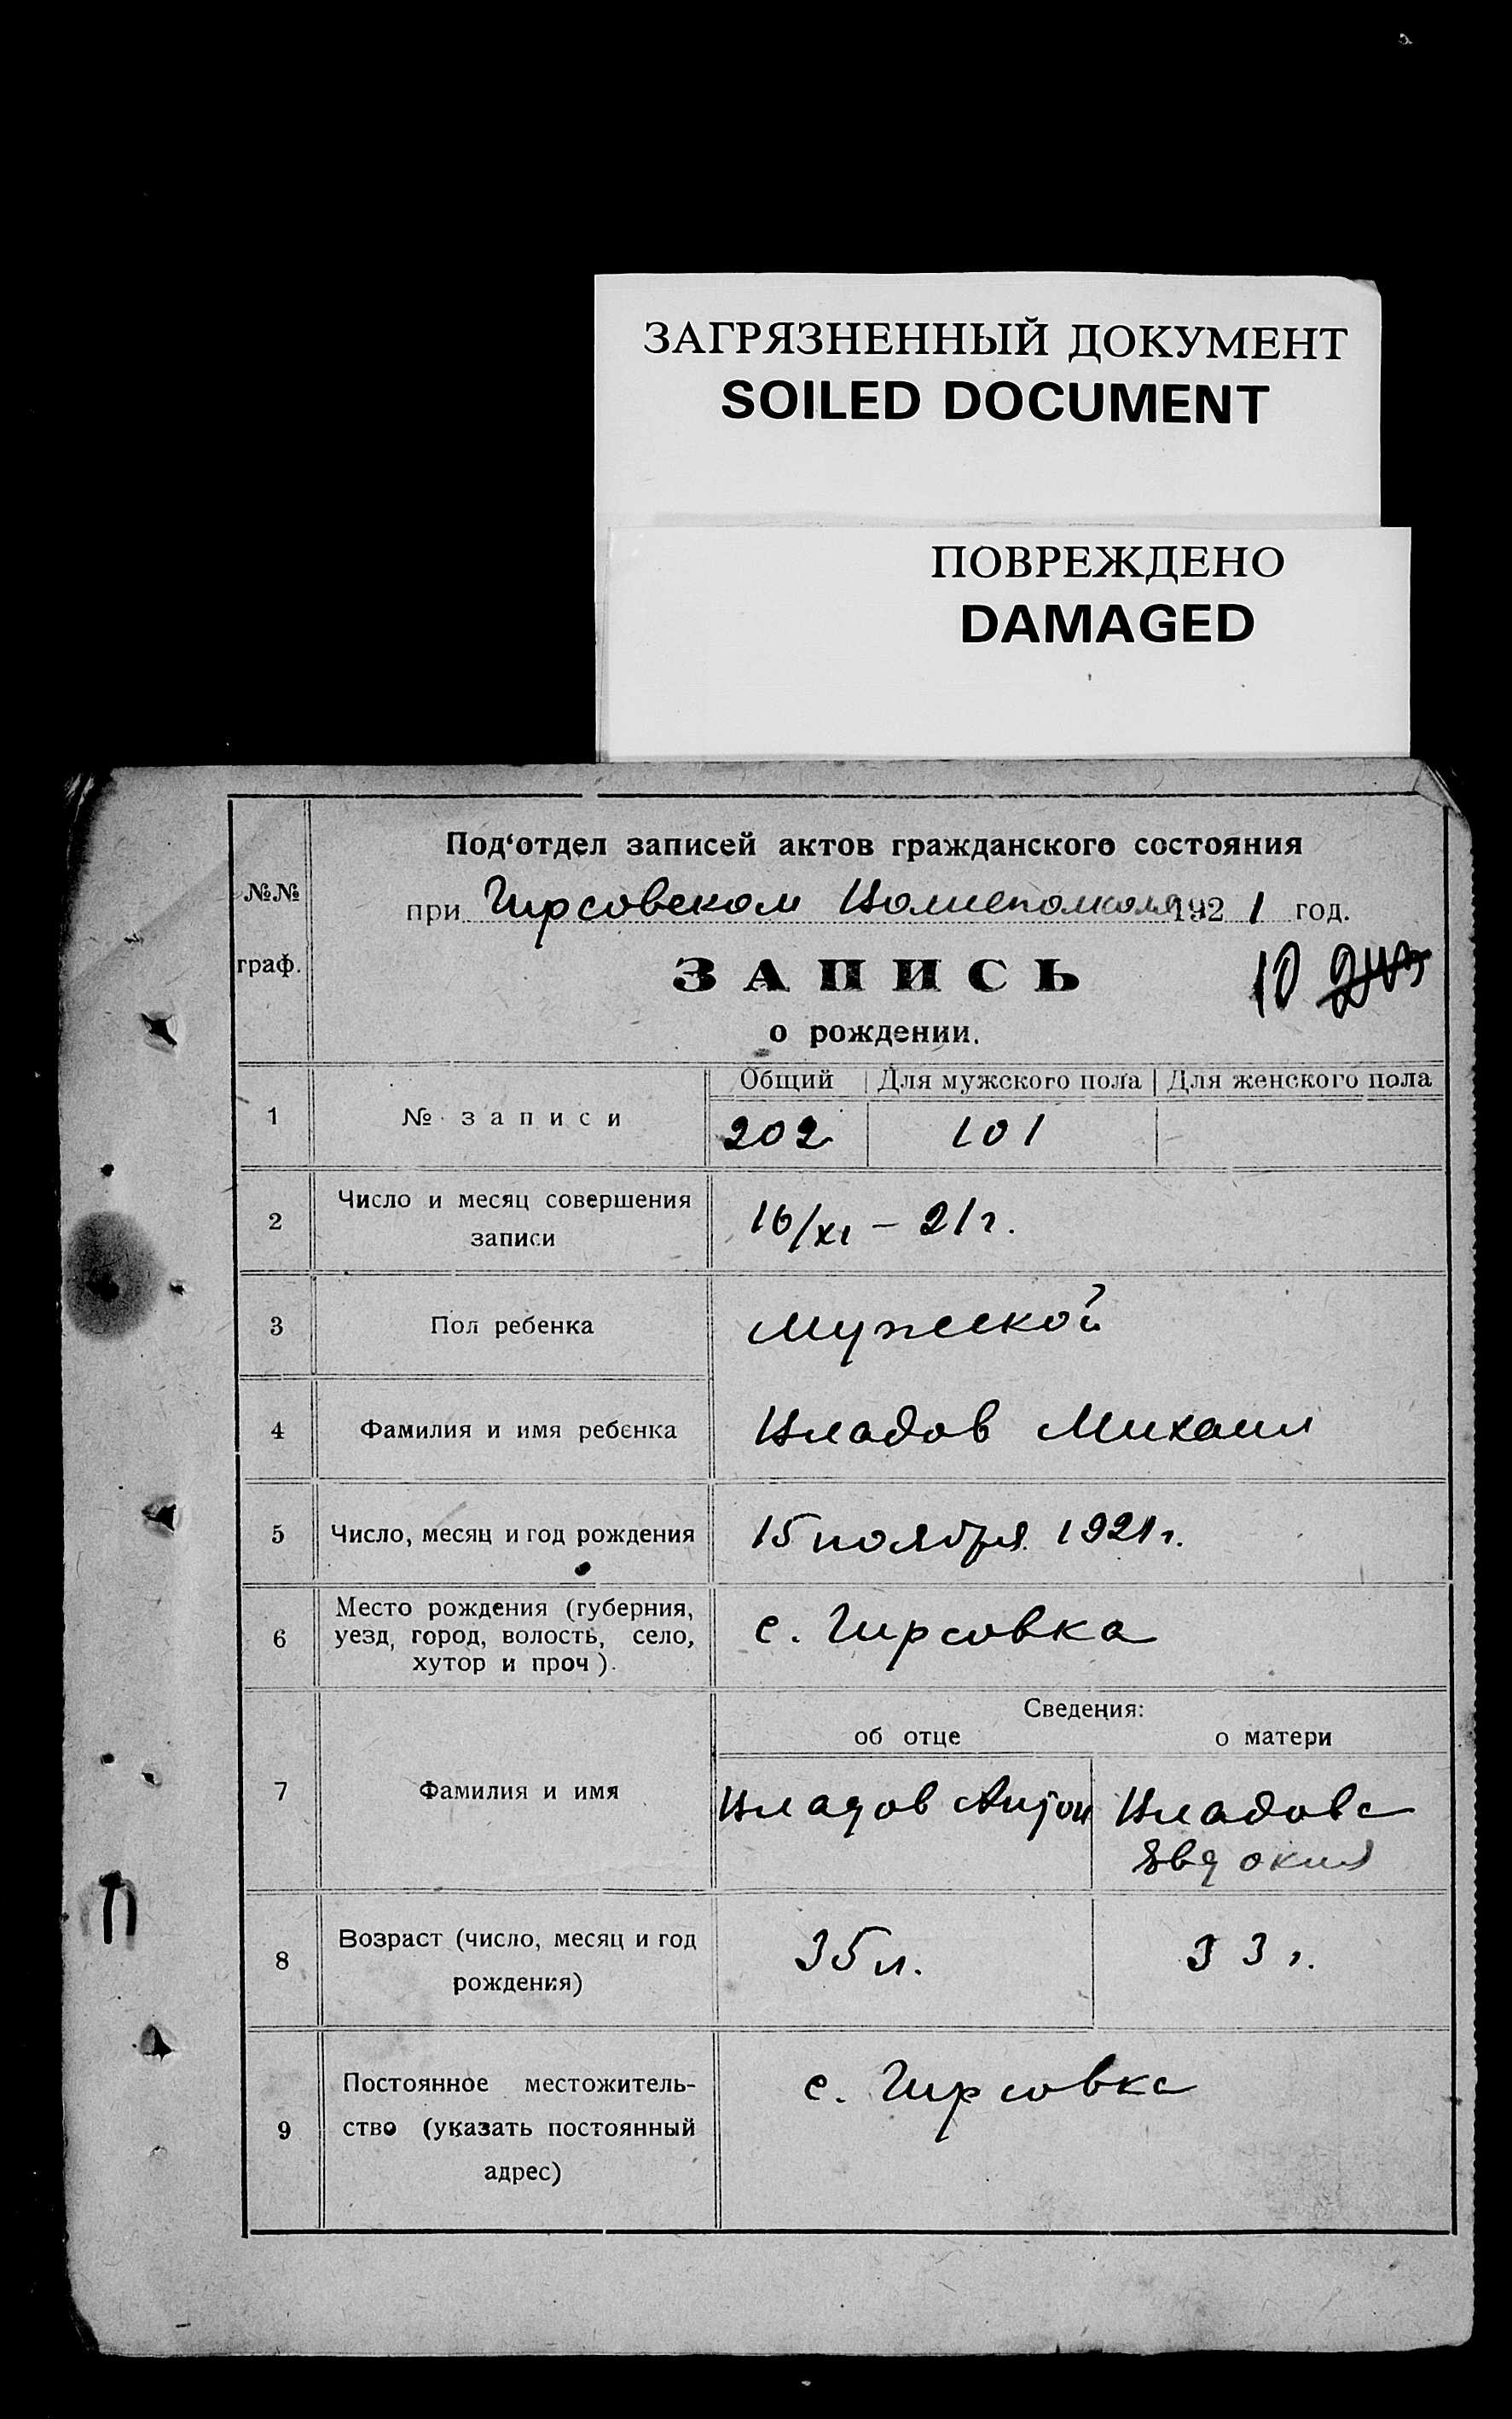 ЗАГРЯЗНЕННЫЙ ДОКУМЕНТ
SOILED DOCUMENT
ПОВРЕЖДЕНО
DAMAGED
№№ граф.
Под‘отдел записей актов гражданского состояния
при Гирсовском 1921 год.
ЗАПИСЬ
10
о рождении.
Общий Для мужского пола Для женского пола
1 № записи 202 101
2 Число и месяц совершения
записи 16/XI – 21 г.
3 Пол ребенка Мужской
4 Фамилия и имя ребенка Михаил
5 Число, месяц и год рождения 15 ноября 1921 г.
6 Место рождения (губерния,
уезд, город, волость, село,
хутор и проч). с. Гирсовка
Сведения:
об отце о матери
7 Фамилия и имя Антон
Евдокия
8 Возраст (число, месяц и год
рождения) 35 л. 33 г.
9 Постоянное местожитель-
ство (указать постоянный
адрес) с. Гирсовка